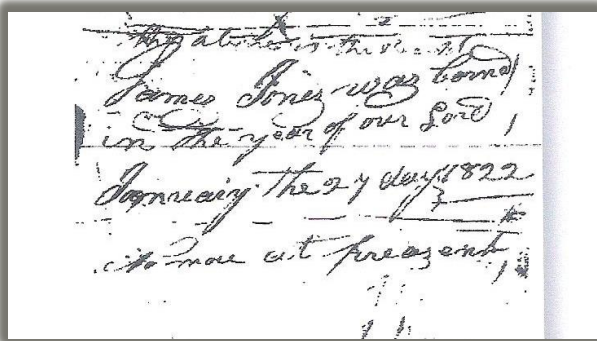 in the
James Jones was bornd
in the year of our Lord
January The 27 day 1822
No more at preasent